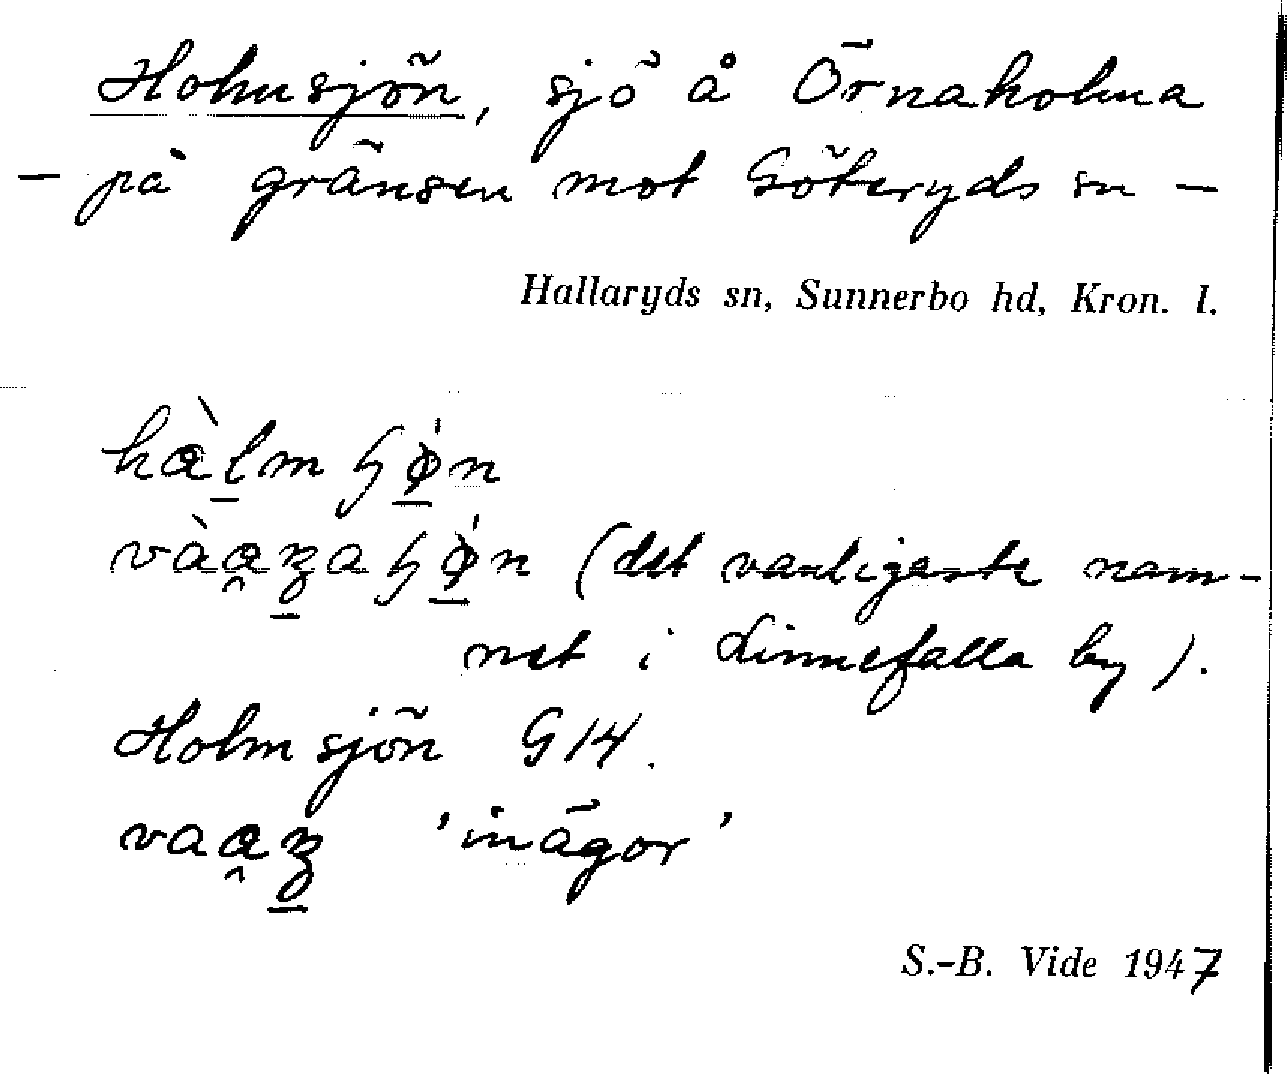 Holmsjön, sjö å Örnaholma
— på gränsen mot Göteryds sn —
Hallaryds sn, Sunnerbo hd, Kron. l.
(det vanligaste nam-
net i Linnefalla by).
Holmsjön G14.
'inägor'
S.-B. Vide 1947